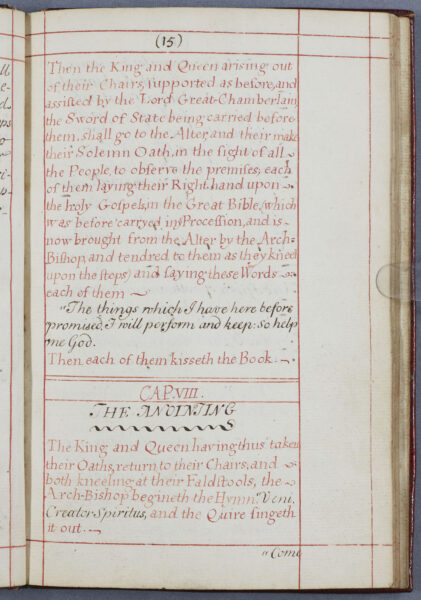 (15)
Then the King and Queen arising out
of their Chairs, supported as before, and
assisted by the Lord Great-Chamberlain,
the Sword of State being carried before
them, shall go to the Alter, and their make
their Solemn Oath, in the sight of all
the People, to observe the premises; each
of them laying their Right hand upon
the holy Gospels, in the Great Bible, (which
was before carryed in Procession, and is
now brought from the Alter by the Arch-
Bishop, and tendred to them as they kneel
upon the steps) and saying these Words
each of them
"The things which I have here before
promised, I will perform and keep: so help
me God.
Then each of them kisseth the Book.
CAP. VIII.
THE ANOINTING
The King and Queen having thus taken
their Oaths, return to their Chairs, and
both kneeling at their Faldstools, the
Arch-Bishop begineth the Hymn, Veni,
Creator Spiritus, and the Quire singeth
it out.
"Come